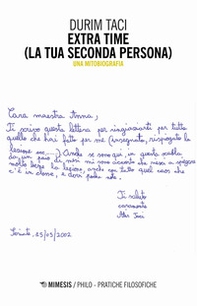 DURIM TACI
EXTRA TIME
(LA TUA SECONDA PERSONA)
UNA MITOBIOGRAFIA
Cara maestra Anna,
Ti scrivo questa lettera per ringraziarti per tutto
quello che hai fatto per me (insegnato, rispiegato la
lezione ecc...). Anche se sono qui, in questa scuola
da un paio di mesi mi sono accorto che riesci a spiegare
molto bene la lezione, anche con tutto quel caos che
c'è in classe, e devi
Ti saluto
caramente
Taci
25/05/2002
MIMESIS / PHILO - PRATICHE FILOSOFICHE